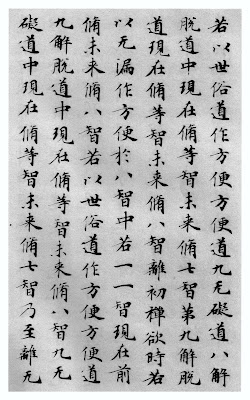 若以世俗道作方便道九无礙道八解
脱道中現在脩等智未来脩七智第九解脱
道現在脩等智未来脩八智離初禪欲時若
以无漏作方便於八智中若一一智現在前
脩未来脩八智若以世俗道作方便道
九解脱道中現在脩等智未来脩八智九无
礙道中現在脩等智未来脩七智乃至離无